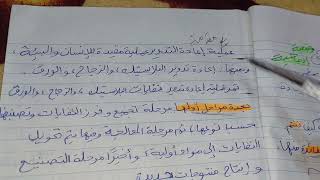 عملية إعادة التدوير عملية مفيدة للإنسان والبيئة،
ومنها: إعادة تدوير البلاستيك، والزجاج، والورق
تمر عملية إعادة تدوير نفايات البلاستيك، والزجاج، والورق
بعدة مراحل أولها مرحلة تجميع وفرز النفايات وتصنيفها
حسب نوعها، ثم مرحلة المعالجة وفيها يتم تحويل
النفايات إلى مواد أولية، وأخيرًا مرحلة التصنيع
وإنتاج منتوجات جديدة